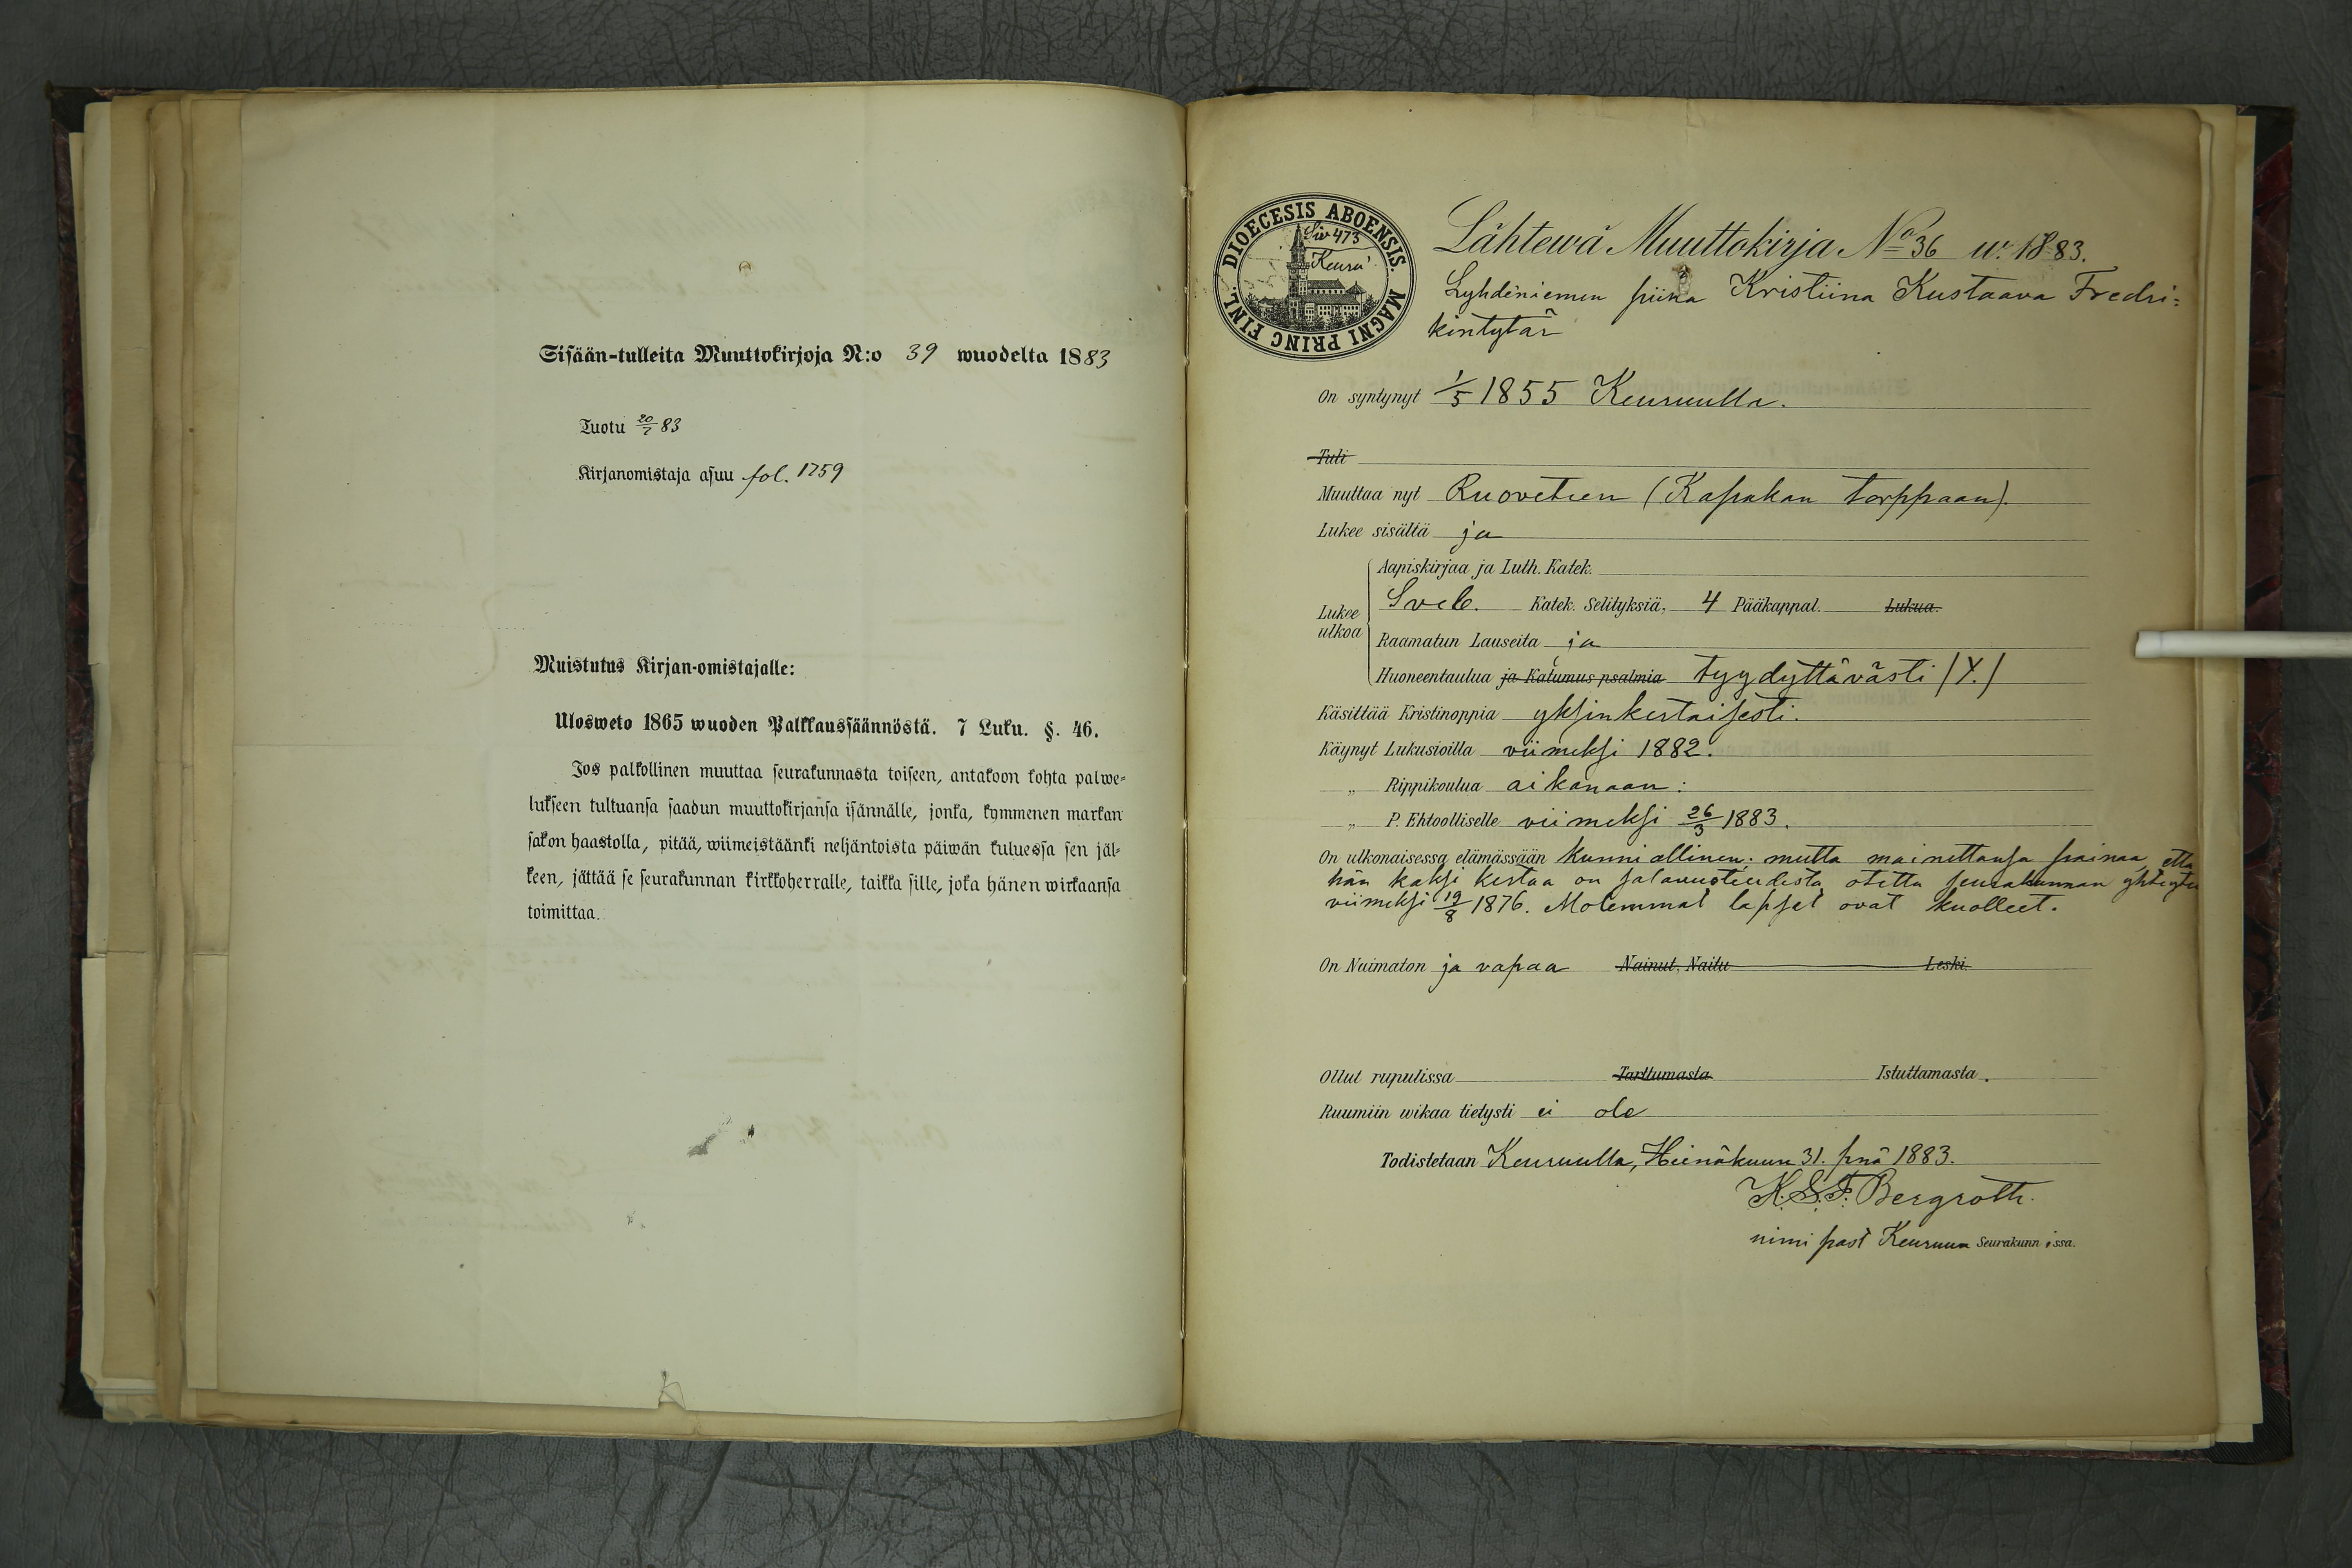 Sisään-tulleita Muuttokirjoja N:o 39 wuodelta 1883
Tuotu 20/7 83
Kirjanomistaja asuu fol. 1259
Muistutus Kirjan-omistajalle:
Ulosweto 1865 wuoden Palkkaussäännöstä. 7 Luku. §. 46.
Jos palkollinen muuttaa seurakunnasta toiseen, antakoon kohta palwe-
lukseen tultuansa saadun muuttokirjansa isännälle, jonka, kymmenen markan
sakon haastolla, pitää, wiimeistäänki neljäntoista päiwän kuluessa sen jäl-
keen, jättää se seurakunnan kirkkoherralle, taikka sille, joka hänen wirkaansa
toimittaa.
DIOECESIS ABOENSIS. MAGNI PRINC FINL.
Siv 473
Keuru
Lähtewä Muuttokirja No 36 w. 1883.
Lyhdiniemen piika Kristiina Kustaava Fredri:
kintytär
On syntynyt 1/5 1855 Keuruulla.
Tuli
Muuttaa nyt Ruoveteen (Kapakan torppaan).
Lukee sisältä ja
Aapiskirjaa ja Luth. Katek.
Lukee ulkoa
Sveb. Katek. Selityksiä, 4 Pääkappal. Lukua.
Raamatun Lauseita ja
Huoneentaulua ja Katumus psalmia tyydyttävästi (Y.)
Käsittää Kristinoppia yksinkertaisesti.
Käynyt Lukusioilla viimeksi 1882.
„ Rippikoulua aikanaan:
„ P. Ehtoolliselle viimeksi 26/3 1883.
On ulkonaisessa elämässään kunniallinen: mutta mainettansa painaa, että
hän kaksi kertaa on salavuoteudesta otettu seurakunnan yhteyteen
viimeksi 19/8 1876. Molemmat lapset ovat kuolleet.
On Naimaton ja vapaa Nainut, Naitu Leski.
Ollut rupulissa Tarttumasta Istuttamasta.
Ruumiin wikaa tietysti ei ole
Todistetaan Keuruulla, Heinäkuun 31. pnä 1883.
K. S. F. Bergroth.
nimi past Keuruun Seurakunnissa.